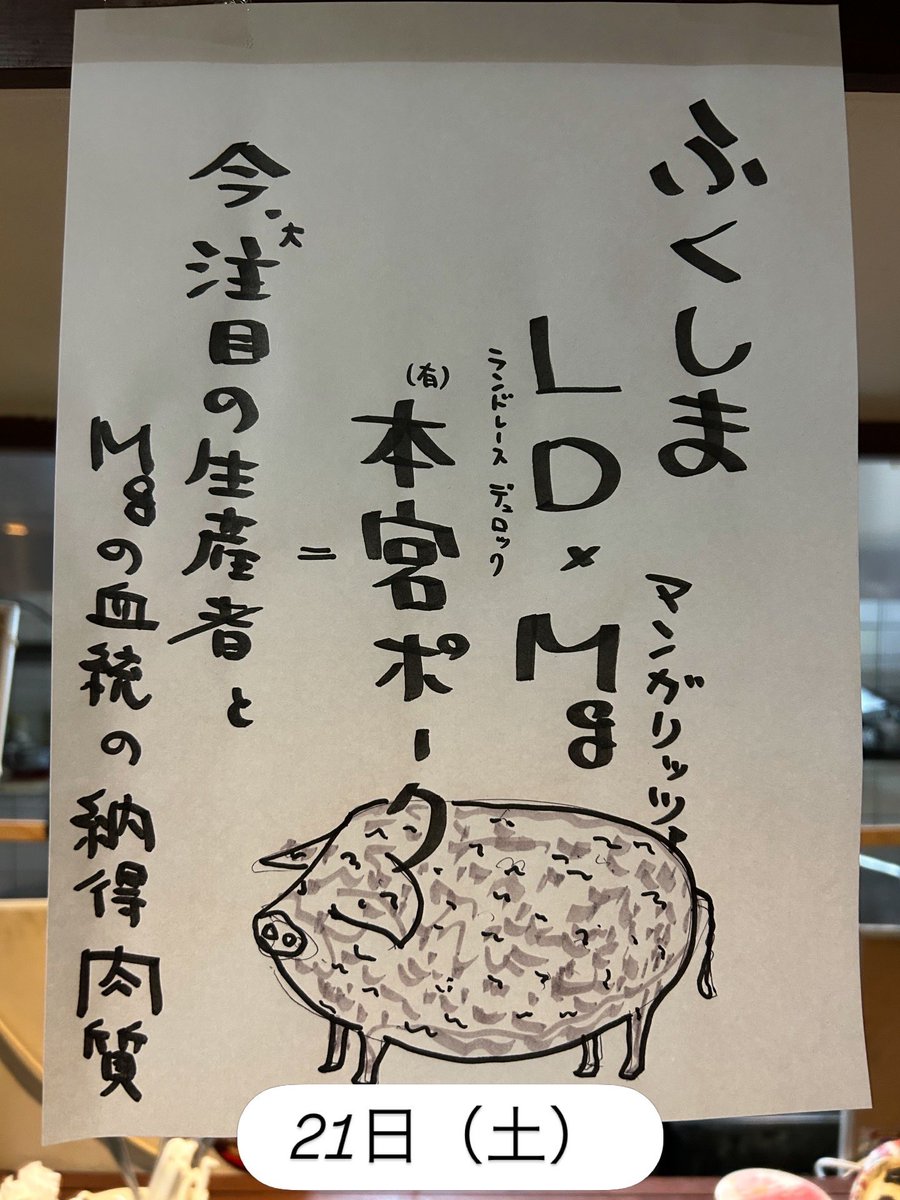 ふくしま
LD×Mg
ランドレース デュロック
マンガリッツァ
(有)
本宮ポーク
=
今、大注目の生産者と
Mgの血統の納得肉質
21日（土）